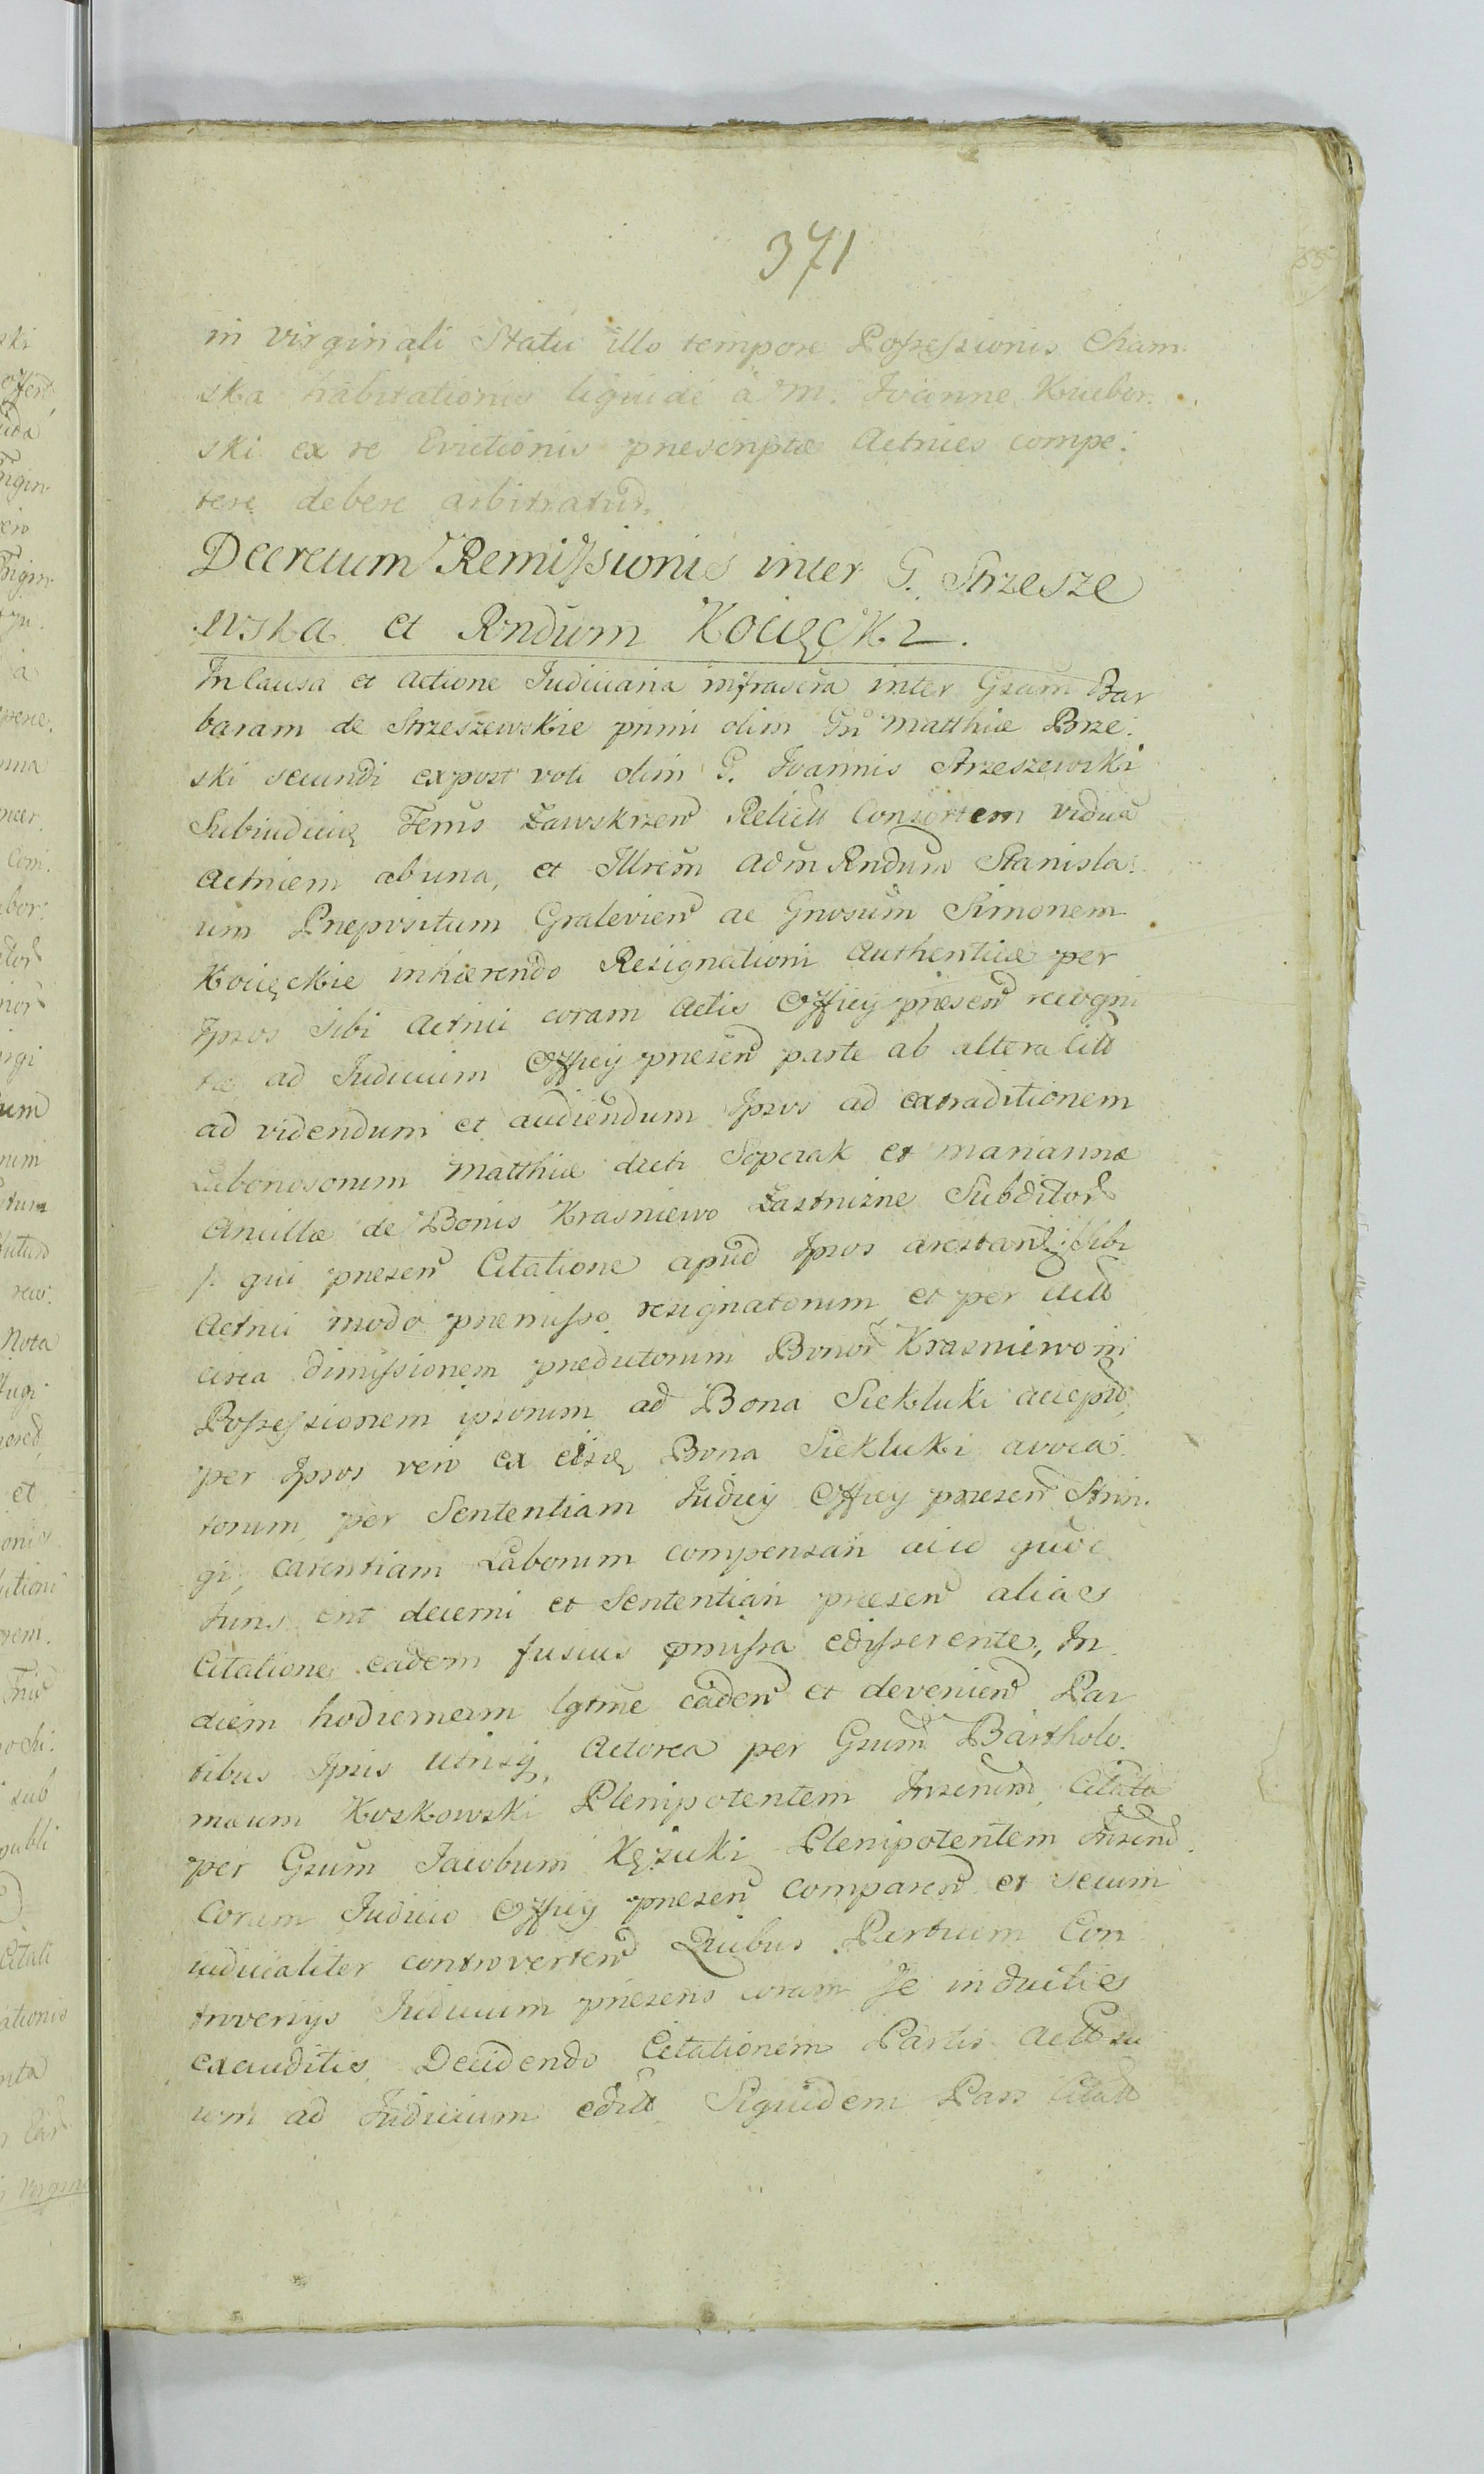 371
in virginali Statu illo tempore Possessionis Cham:
ska habitationis liquide à M. Joanne Kuebor:
ski ex re Evictionis prescriptæ Actrices compe:
tere debere arbitratur.
Decretum Remissionis inter G. Strzesze
wska et Rndum Kocięcki.
In Causa et Actione Judiciaria infrascra inter Gsam Bar
baram de Strzeszewskie primi olim Gsi Matthiæ Brze:
ski secundi expost voti olim G. Joannis Strzeszewski
Subiudicis Terris Zawskrzen Relict Consortem viduã
Actricem ab una, et Illrem Adm Rndum Stanisla:
um Præpositum Gralevien ac Gnosum Simonem
Kocięckie inhærendo Resignationi Authenticæ per
Ipsos sibi Actrici coram Actis Officij præsen recogni
tæ ad Judicium Officij presen parte ab altera Citt
ad videndum et audiendum Ipsos ad extraditionem
Laboriosorum Matthiæ dicti Soperak et Mariannæ
Ancillæ de Bonis Krasniewo Zastnizne Subditor
/: qui presen Citatione apud Ipsos arestant :/ Sibi
Actrici modo premisso resignatorum et per Act
circa dimissionem predictorum Bonor Krasniewo in
Possessionem ipsorum ad Bona Siekluki accept,
per Ipsos vero ex eisq Bona Siekluki avoca:
torum, per Sententiam Judicij Officij presen Strin:
gi, carentiam Laborum compensari
Juris erit decerni et Sententiari presen alias
Citatione eadem fusius pmissa edisserente, In
diem hodiernam lgtme caden et devenien Par
tibus Ipsis utrisq, Actorea per Gsum Bartholo:
mæum Koskowski Plenipotentem Insenum, Citata
per Gsum Jacobum Kęsicki Plenipotentem Insend
Coram Judicio Officij presen comparen et secum
iudicialiter controverten Quibus Partium Con
troversijs Judicium presens coram se inductis
exauditis, Decidendo Citationem Partis Act su
um ad Judicium edit Siquidem Pars Citatt